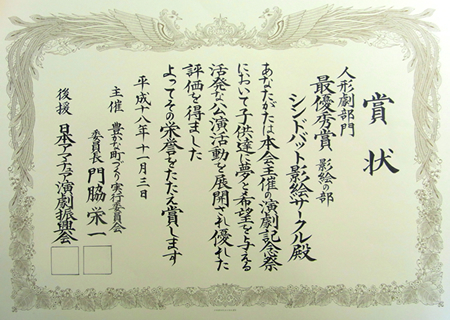 賞状
人形劇部門
最優秀賞 影絵の部
シンドバット影絵サークル殿
あなたがたは本会主催の演劇記念祭
において子供達に夢と希望を与える
活発な公演活動を展開され優れた
評価を得ました
よってその栄誉をたたえ賞します
平成十八年十一月三日
主催 豊かな町づくり実行委員会
委員長 門脇栄一
後援 日本アマチュア演劇振興会